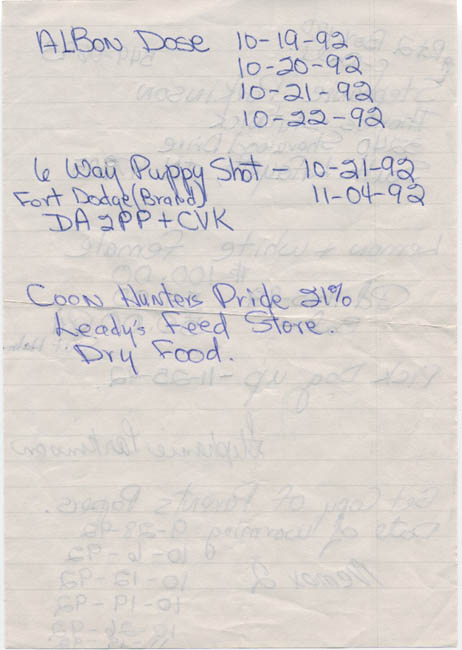 ALBON DOSE 10-19-92
10-20-92
10-21-92
10-22-92
6 Way Puppy Shot - 10-21-92
Fort Dodge (Brand) 11-04-92
DA 2PP + CVK
COON Hunters Pride 21%
Leady's Feed Store.
Dry Food.